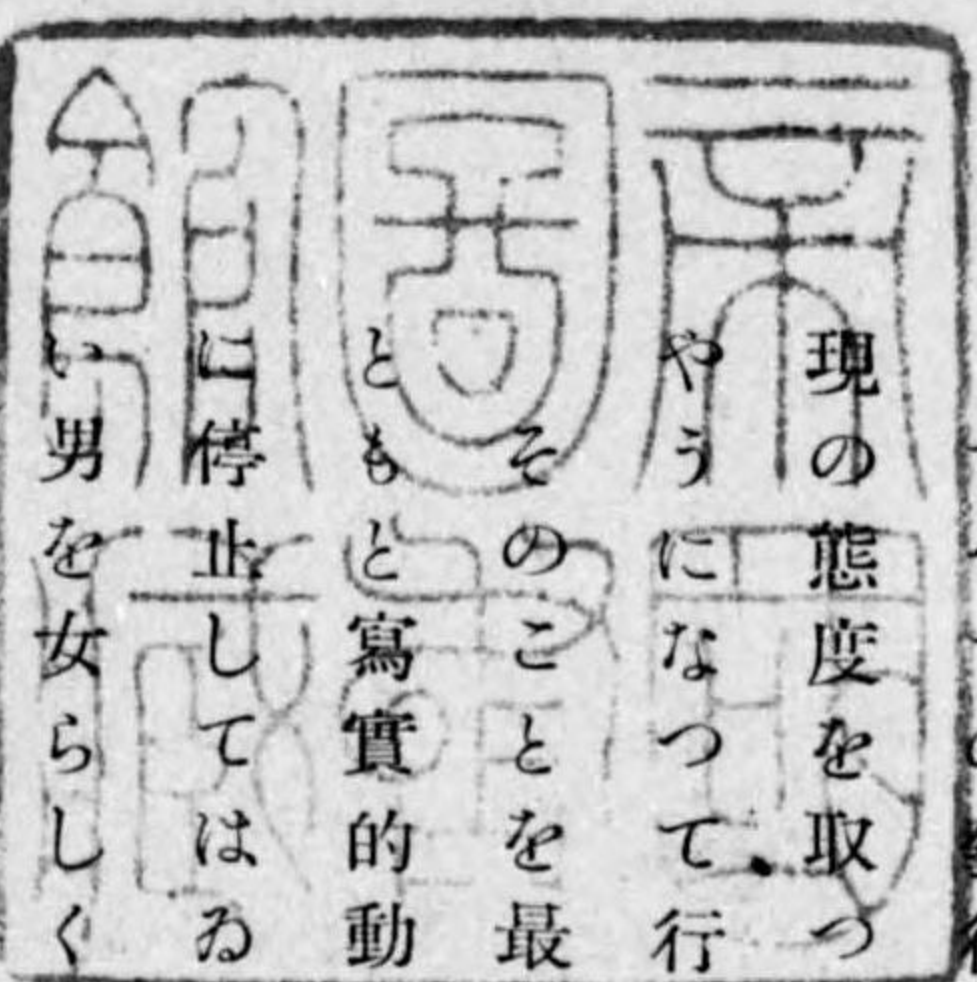 現の態度を取つ
やうになつて行
そのことを最
ともと寫實的動
に停止してはゐ
い男を女らしく